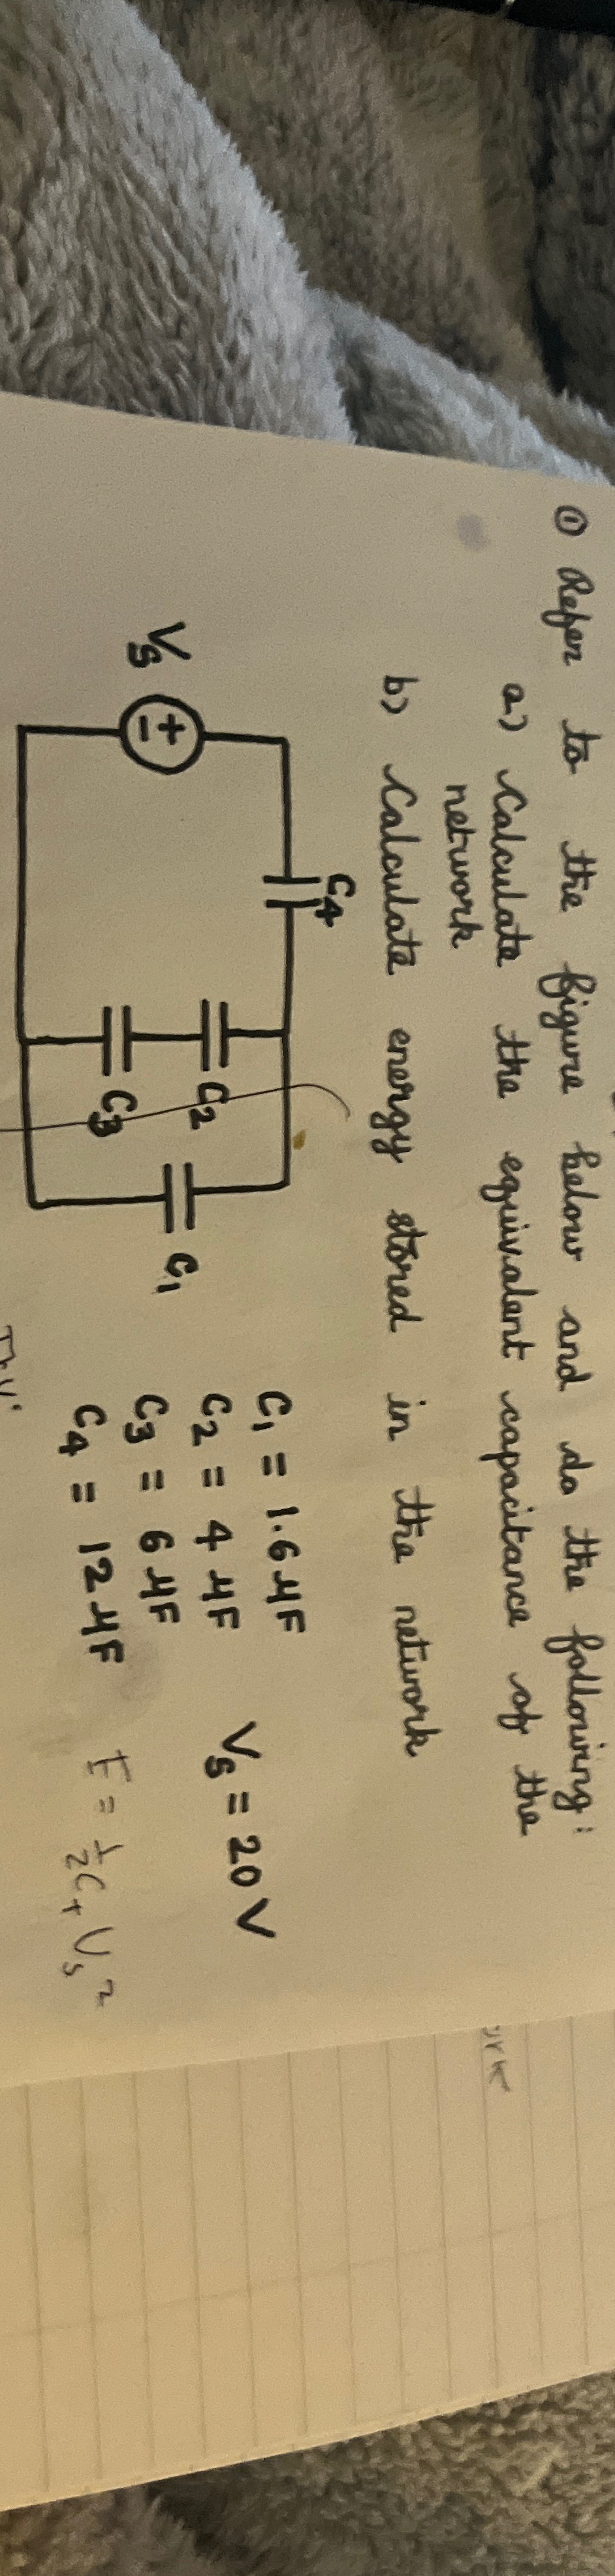 ① Refer to the figure below and do the following:
a) Calculate the equivalent capacitance of the
network
b) Calculate energy stored in the network
C4
Vs
+
-
C2
C3
C1
C1 = 1.6 μF
C2 = 4 μF
C3 = 6 μF
C4 = 12 μF
Vs = 20 V
E = ½ C+ Vs²